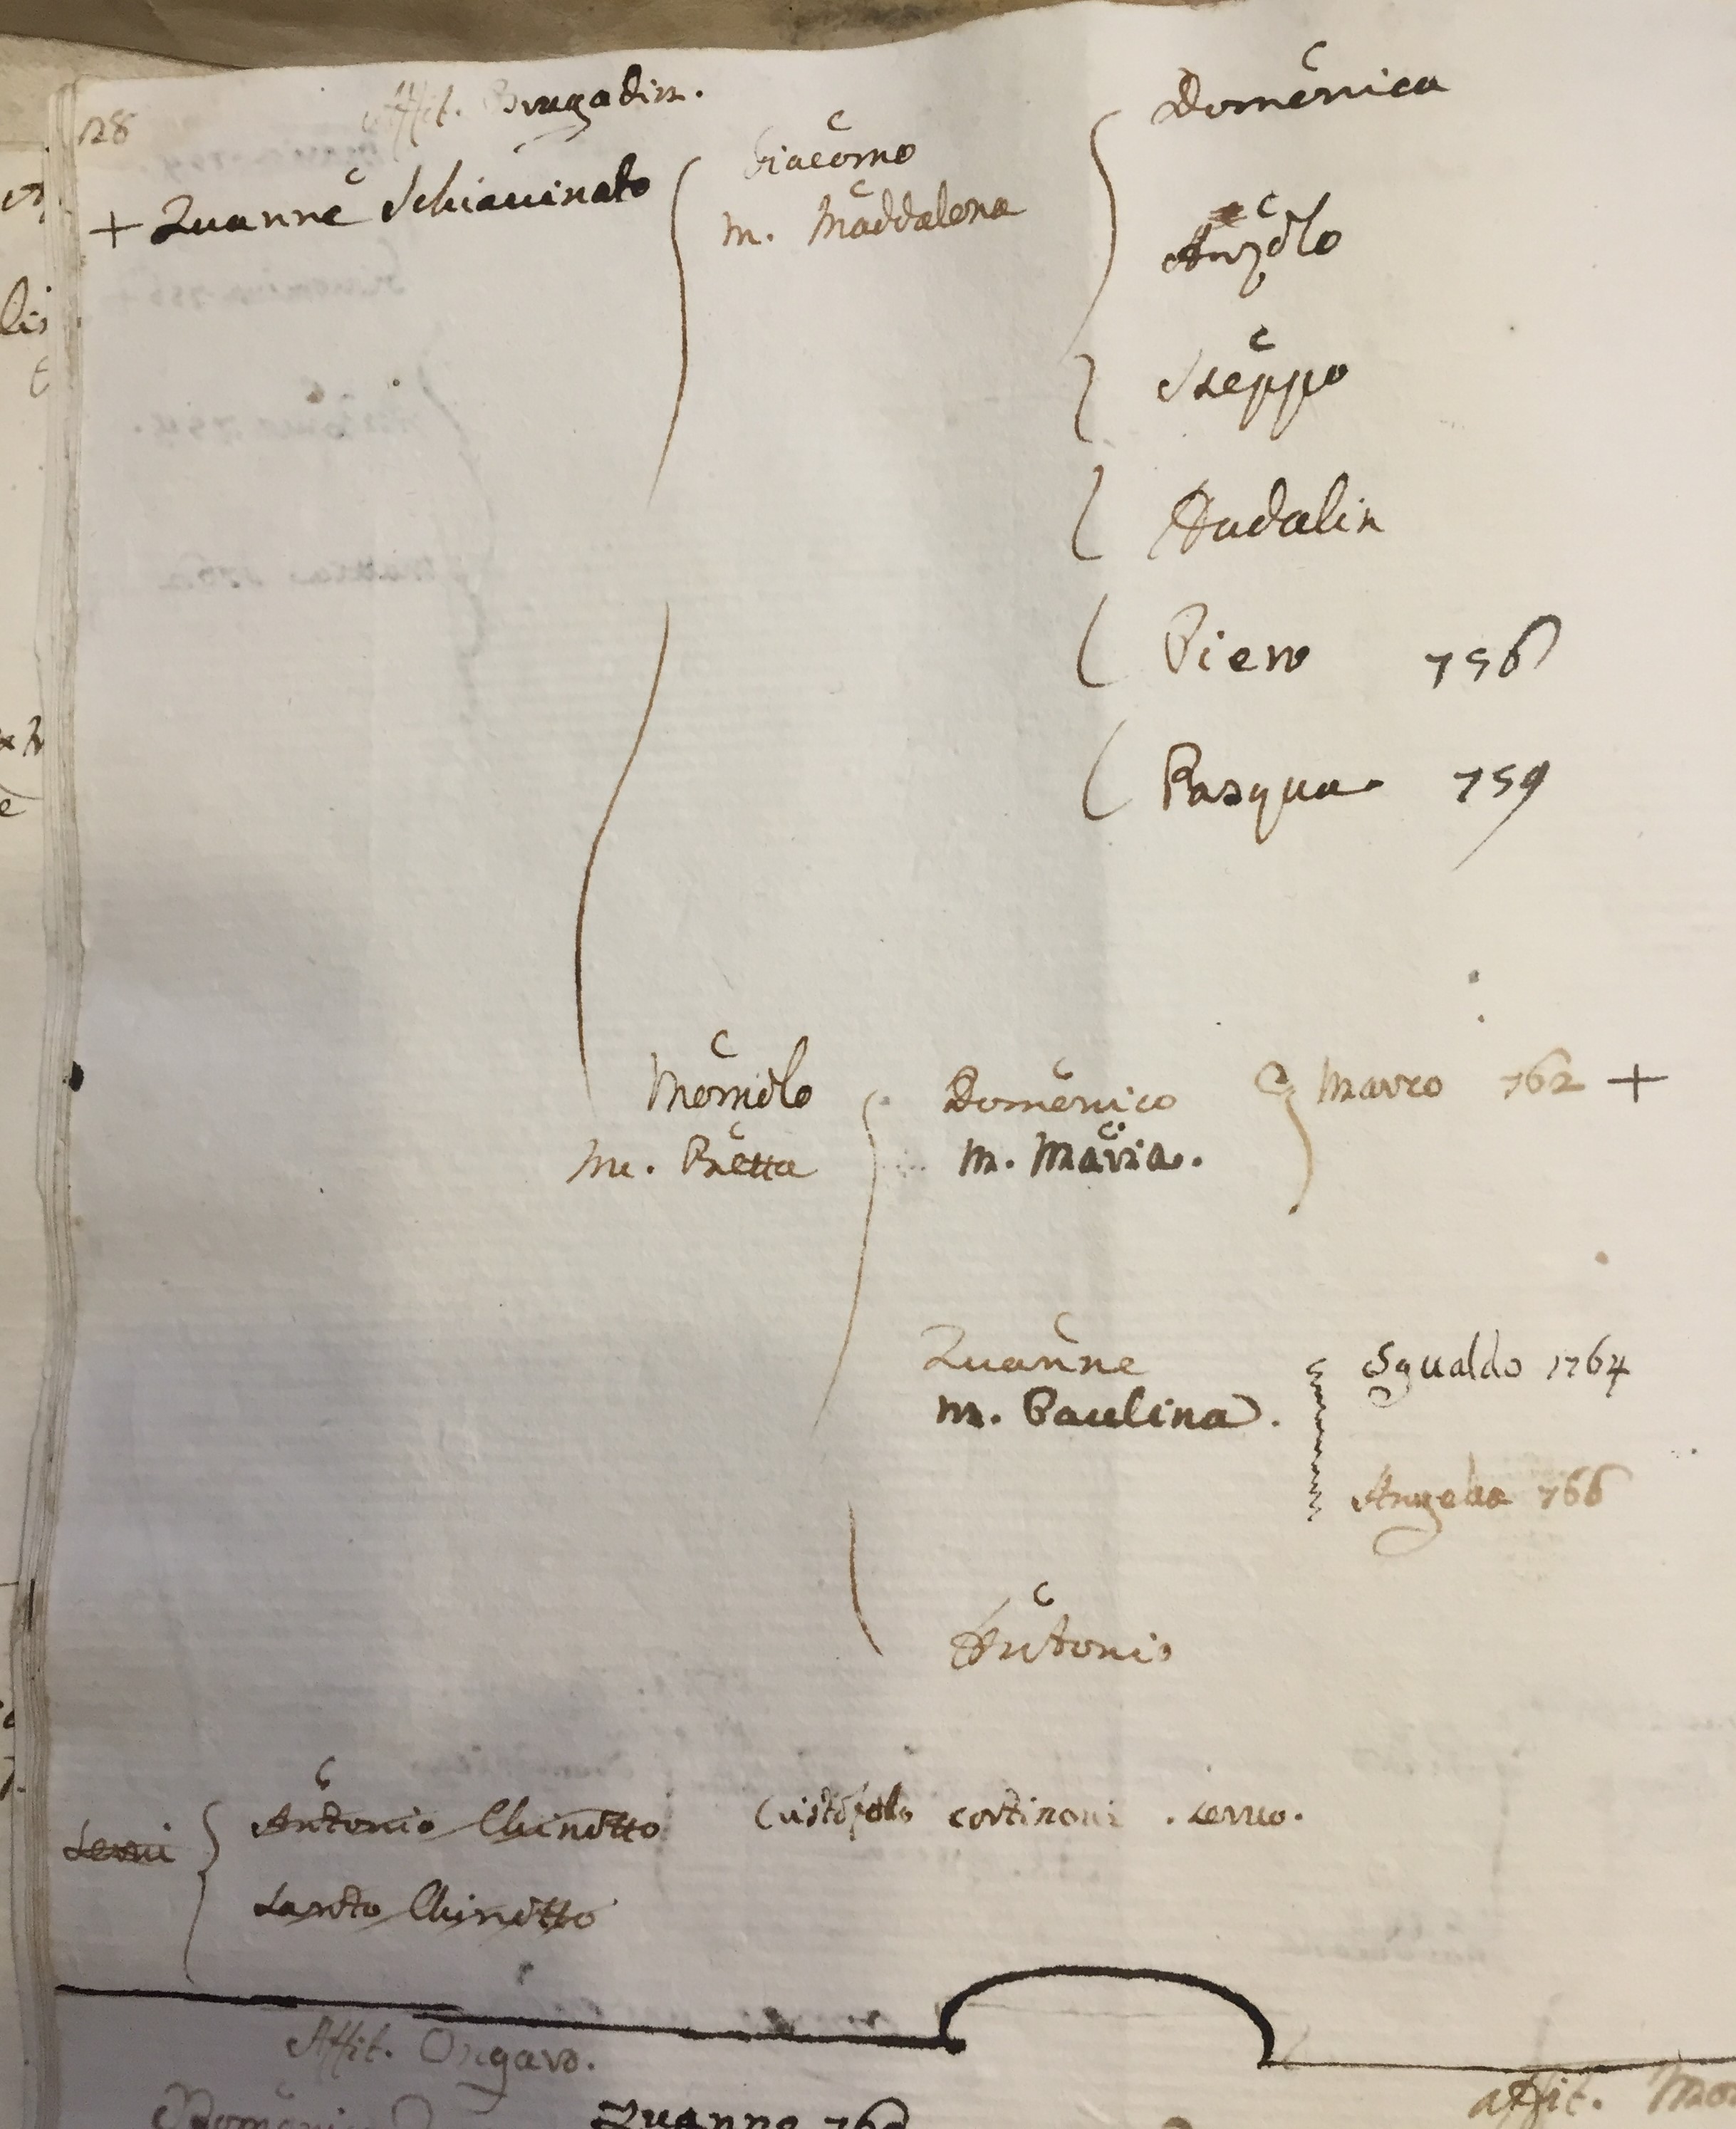 128
Affit. Bragadin.
+ Zuanne Schiavinato
Giacomo
m. Maddalena
Domenica
Anzolo
Iseppo
Nadalin
Piero 756
Pasqua 759
Momolo
m. Betta
Domenico
m. Maria.
Marco 762 +
Zuanne
m. Paulina.
Sgualdo 1764
Angela 766
Antonio
servi
Antonio Chinotto
Cristofolo cortinoni . servo.
Santo Chinotto
Affit. Ongaro.
affit.
Zuanne